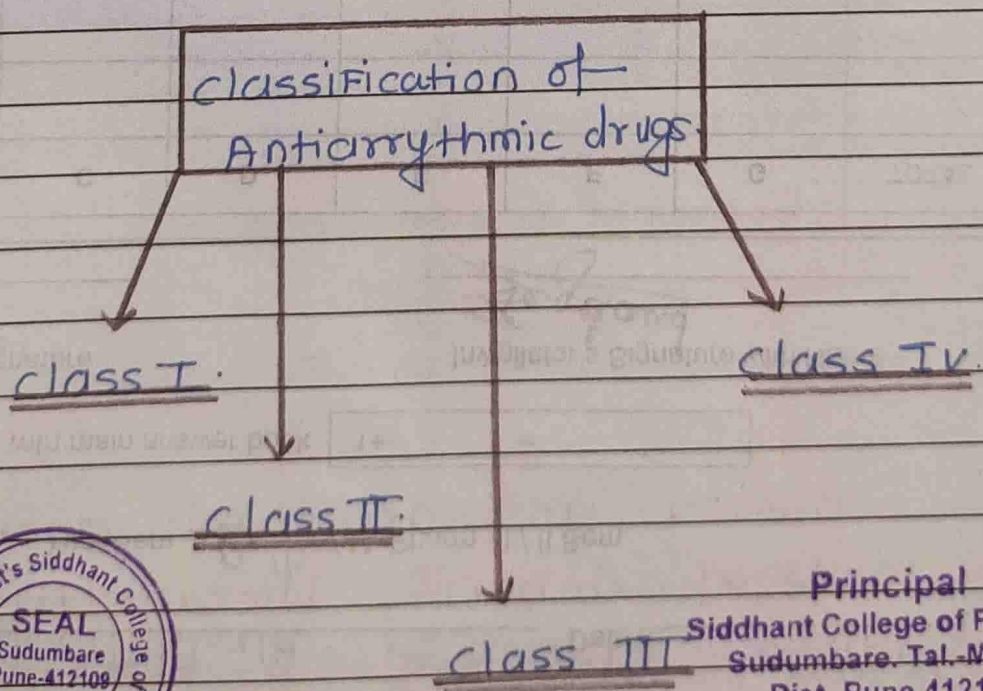 classification of
Antiarrythmic drugs.
class I.
class II.
class III
class IV.
Siddhant College of
SEAL
Sudumbare
Pune-412109
Principal
Siddhant College of
Sudumbare. Tal.-
Dist. Pune